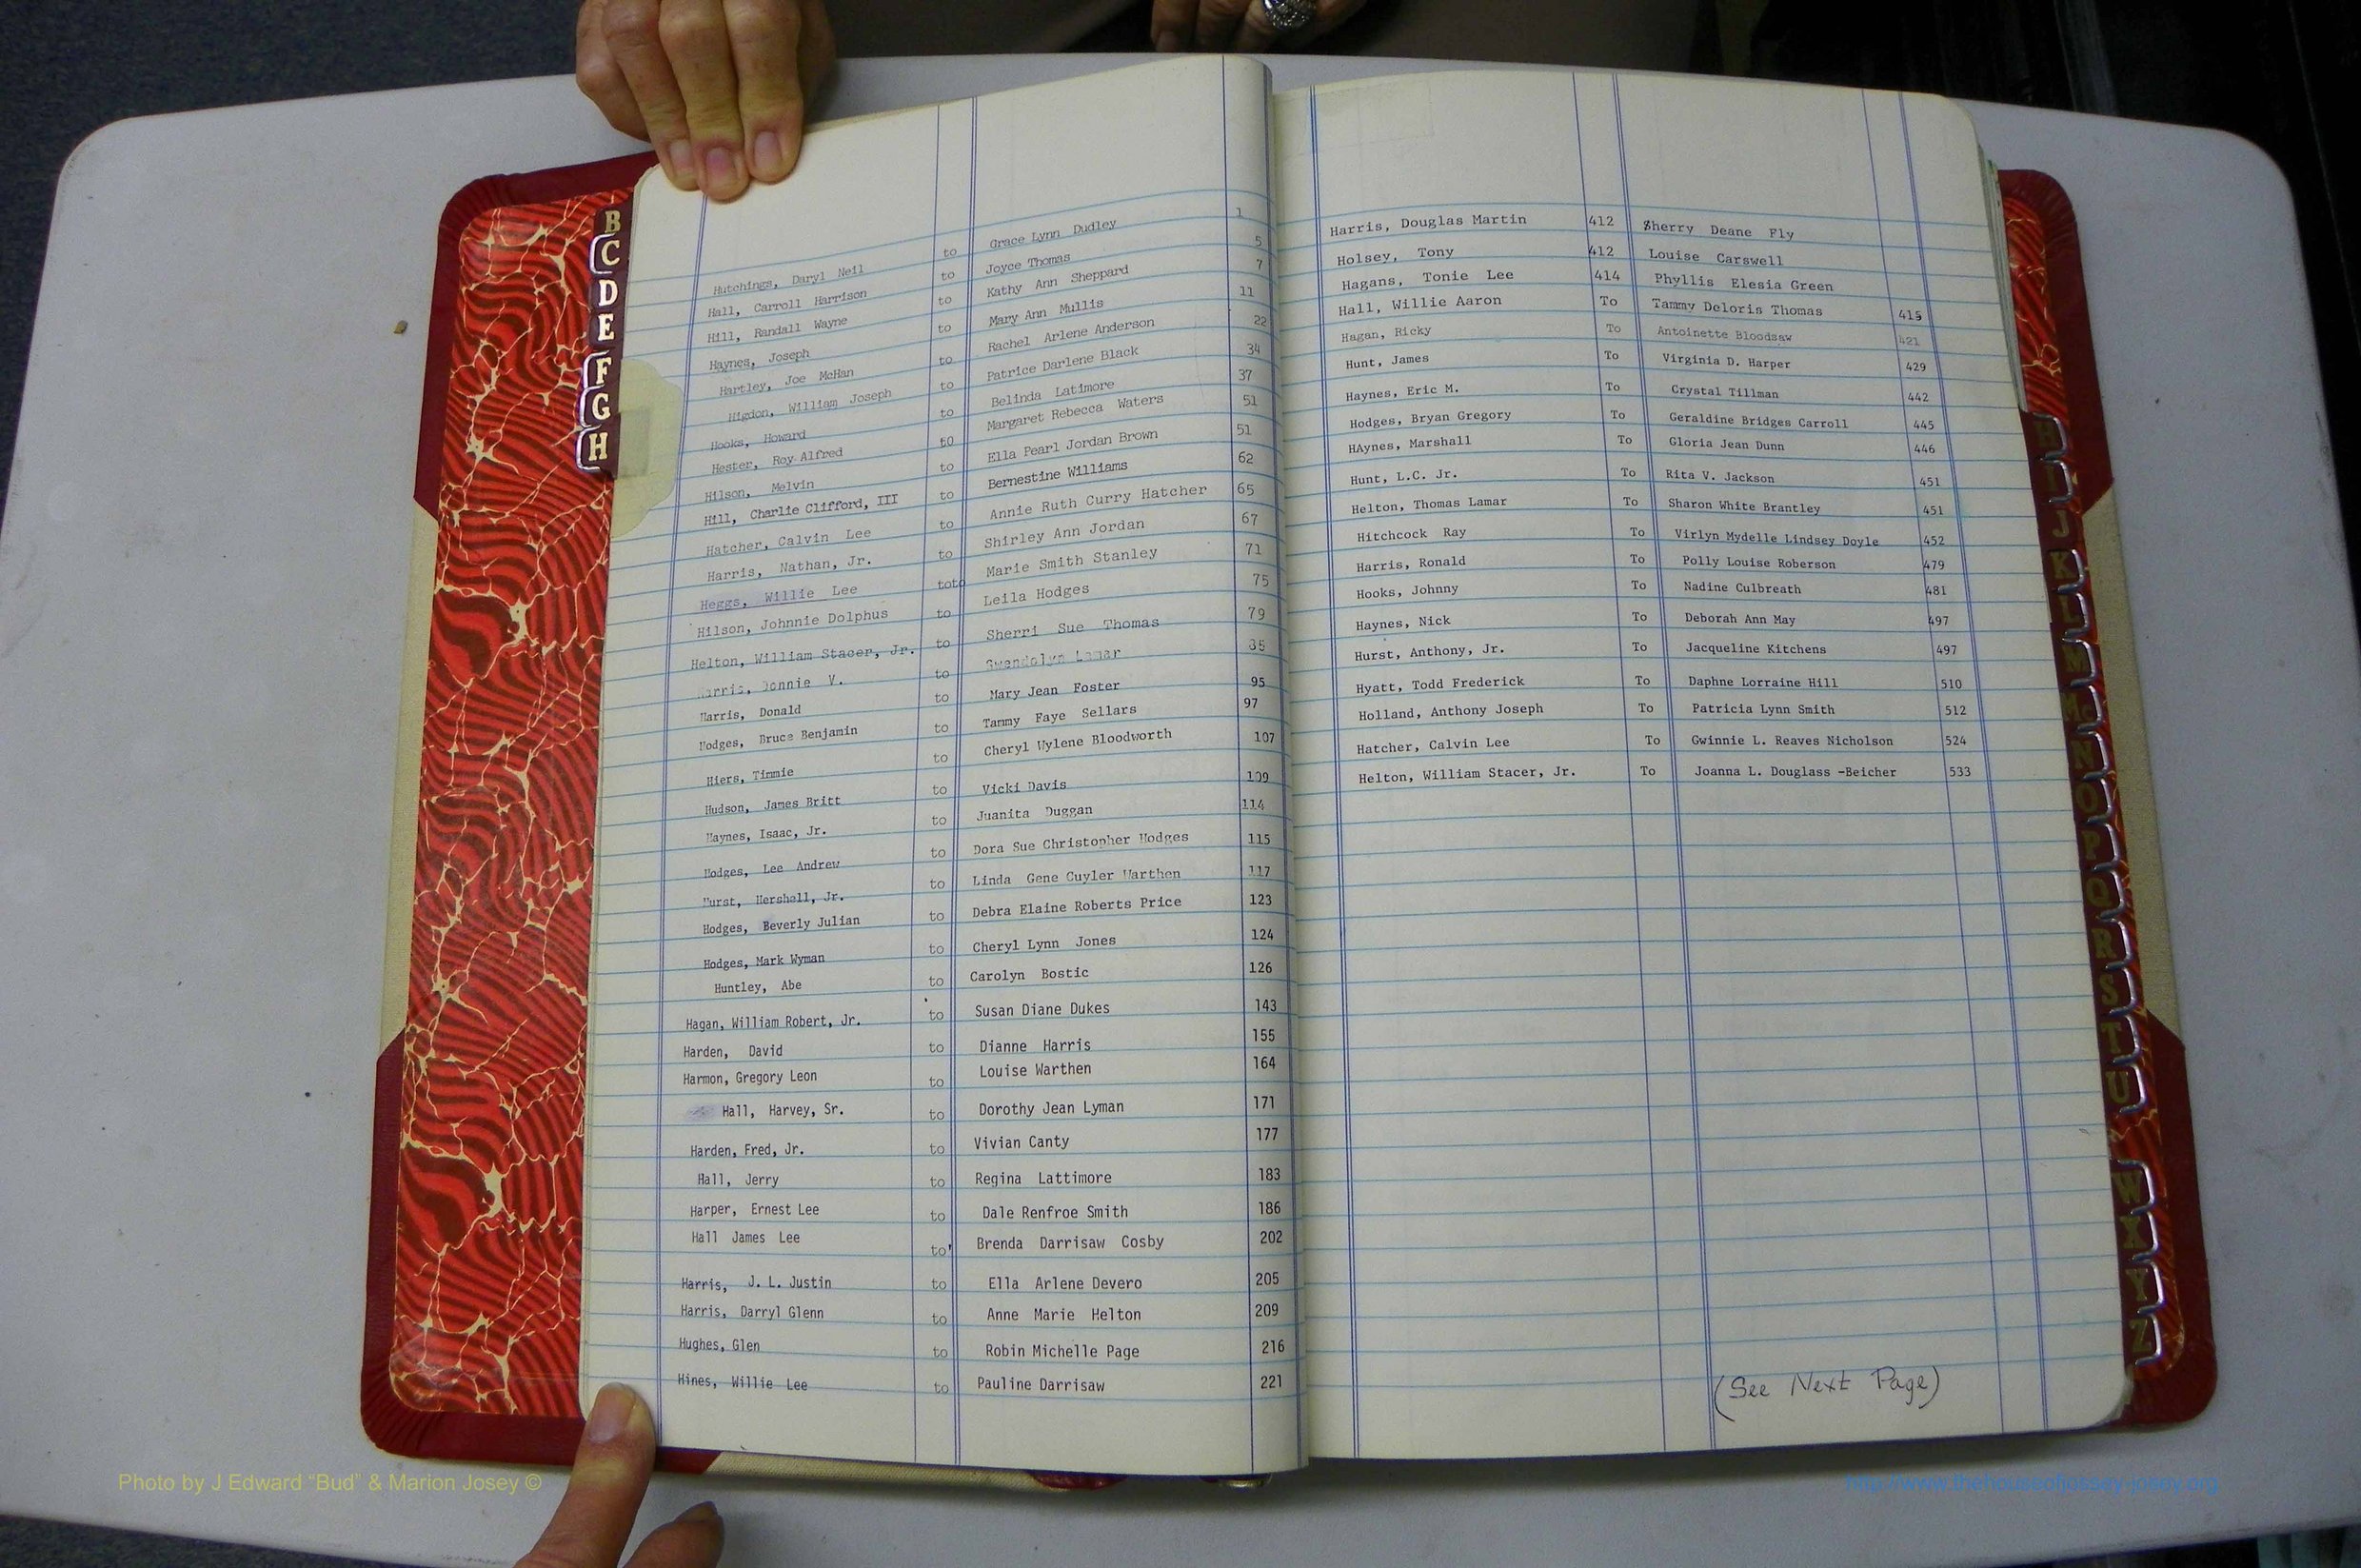 B
C
D
E
F
G
H
Hutchings, Daryl Neil to Grace Lynn Dudley 1
Hall, Carroll Harrison to Joyce Thomas 5
Hill, Randall Wayne to Kathy Ann Sheppard 7
Haynes, Joseph to Mary Ann Mullis 11
Hartley, Joe McHan to Rachel Arlene Anderson 22
Higdon, William Joseph to Patrice Darlene Black 34
Hooks, Howard to Belinda Latimore 37
Hester, Roy Alfred to Margaret Rebecca Waters 51
Hilson, Melvin to Ella Pearl Jordan Brown 51
Hill, Charlie Clifford, III to Bernestine Williams 62
Hatcher, Calvin Lee to Annie Ruth Curry Hatcher 65
Harris, Nathan, Jr. to Shirley Ann Jordan 67
Heggs, Willie Lee toto Marie Smith Stanley 71
Hilson, Johnnie Dolphus to Leila Hodges 75
Helton, William Stacer, Jr. to Sherri Sue Thomas 79
Harris, Donnie V. to Gwendolyn Lamar
Harris, Donald to Mary Jean Foster 95
Hodges, Bruce Benjamin to Tammy Faye Sellars 97
Hiers, Timmie to Cheryl Wylene Bloodworth 107
Hudson, James Britt to Vicki Davis 109
Haynes, Isaac, Jr. to Juanita Duggan 114
Hodges, Lee Andrew to Dora Sue Christopher Hodges 115
Hurst, Hershell, Jr. to Linda Gene Cuyler Warthen 117
Hodges, Beverly Julian to Debra Elaine Roberts Price 123
Hodges, Mark Wyman to Cheryl Lynn Jones 124
Huntley, Abe to Carolyn Bostic 126
Hagan, William Robert, Jr. to Susan Diane Dukes 143
Harden, David to Dianne Harris 155
Harmon, Gregory Leon to Louise Warthen 164
Hall, Harvey, Sr. to Dorothy Jean Lyman 171
Harden, Fred, Jr. to Vivian Canty 177
Hall, Jerry to Regina Lattimore 183
Harper, Ernest Lee to Dale Renfroe Smith 186
Hall James Lee to' Brenda Darrisaw Cosby 202
Harris, J. L. Justin to Ella Arlene Devero 205
Harris, Darryl Glenn to Anne Marie Helton 209
Hughes, Glen to Robin Michelle Page 216
Hines, Willie Lee to Pauline Darrisaw 221
Harris, Douglas Martin 412 Sherry Deane Fly
Holsey, Tony 412 Louise Carswell
Hagans, Tonie Lee 414 Phyllis Elesia Green
Hall, Willie Aaron To Tammy Deloris Thomas 415
Hagan, Ricky To Antoinette Bloodsaw 421
Hunt, James To Virginia D. Harper 429
Haynes, Eric M. To Crystal Tillman 442
Hodges, Bryan Gregory To Geraldine Bridges Carroll 445
HAynes, Marshall To Gloria Jean Dunn 446
Hunt, L.C. Jr. To Rita V. Jackson 451
Helton, Thomas Lamar To Sharon White Brantley 451
Hitchcock Ray To Virlyn Mydelle Lindsey Doyle 452
Harris, Ronald To Polly Louise Roberson 479
Hooks, Johnny To Nadine Culbreath 481
Haynes, Nick To Deborah Ann May 497
Hurst, Anthony, Jr. To Jacqueline Kitchens 497
Hyatt, Todd Frederick To Daphne Lorraine Hill 510
Holland, Anthony Joseph To Patricia Lynn Smith 512
Hatcher, Calvin Lee To Gwinnie L. Reaves Nicholson 524
Helton, William Stacer, Jr. To Joanna L. Douglass -Beicher 533
(See Next Page)
H
I
J
K
L
M
Mc
N
O
P
Q
R
S
T
U
W
X
Y
Z
Photo by J Edward “Bud” & Marion Josey ©
http://www.thehouseofjossey-josey.org